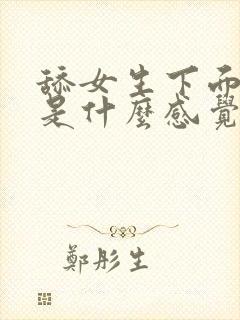 舔女生下面
是什麼感覺
鄭彤生